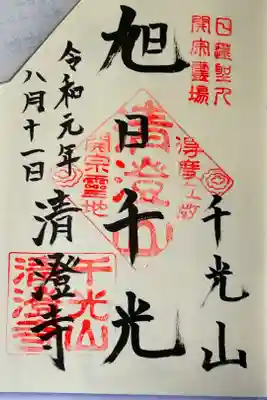 日蓮聖人
開宗霊場
千光山
旭日千光
清澄山
開宗霊地
令和元年
八月十一日
清澄寺
千光山
清澄寺